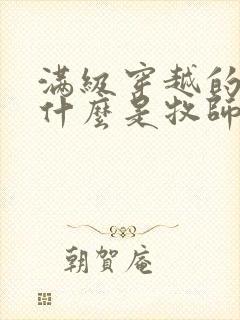 滿級穿越的
什麼是牧師
朝賀庵